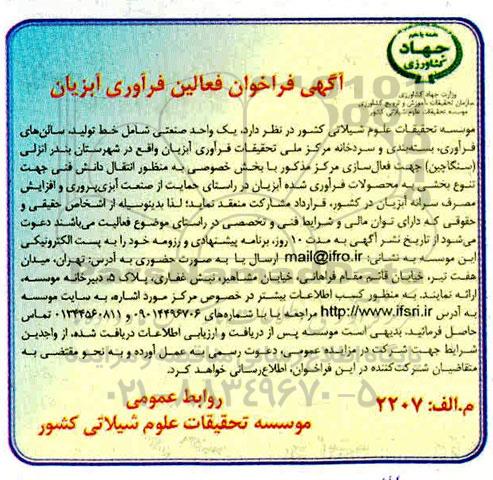 جهاد
کشاورزی
وزارت جهاد کشاورزی
سازمان تحقیقات، آموزش و ترویج کشاورزی
موسسه تحقیقات علوم شیلاتی کشور
آگهی فراخوان فعالین فرآوری آبزیان
موسسه تحقیقات علوم شیلاتی کشور در نظر دارد، یک واحد صنعتی شامل خط تولید، سالن‌های
فرآوری، بسته‌بندی و سردخانه مرکز ملی تحقیقات فرآوری آبزیان واقع در شهرستان بندر انزلی
(سنگاچین) جهت فعال‌سازی مرکز مذکور با بخش خصوصی به منظور انتقال دانش فنی جهت
تنوع بخشی به محصولات فرآوری شده آبزیان در راستای حمایت از صنعت آبزی‌پروری و افزایش
مصرف سرانه آبزیان در کشور، قرارداد مشارکت منعقد نماید؛ لذا بدینوسیله از اشخاص حقیقی و
حقوقی که دارای توان مالی و شرایط فنی و تخصصی در راستای موضوع فعالیت می‌باشند دعوت
می‌شود از تاریخ نشر آگهی به مدت ۱۰ روز، برنامه پیشنهادی و رزومه خود را به پست الکترونیکی
این موسسه به نشانی: mail@ifro.ir ارسال یا به صورت حضوری به آدرس: تهران، میدان
هفت تیر، خیابان قائم مقام فراهانی، خیابان مشاهیر، نبش غفاری، پلاک ۵، دبیرخانه موسسه،
ارائه نمایند. به منظور کسب اطلاعات بیشتر در خصوص مرکز مورد اشاره، به سایت موسسه
به آدرس http://www.ifsri.ir مراجعه یا با شماره‌های ۰۹۰۱۴۴۹۶۷۰۶ و ۰۱۳۴۴۵۶۰۸۱۱ تماس
حاصل فرمائید. بدیهی است موسسه پس از دریافت و ارزیابی اطلاعات دریافت شده، از واجدین
شرایط جهت شرکت در مزایده عمومی، دعوت رسمی به عمل آورده و به نحو مقتضی به
متقاضیان شرکت‌کننده در این فراخوان، اطلاع‌رسانی خواهد کرد.
۰۲۱-۸۸۳۴۹۶۷۰-۵
م.الف: ۲۲۰۷
روابط عمومی
موسسه تحقیقات علوم شیلاتی کشور